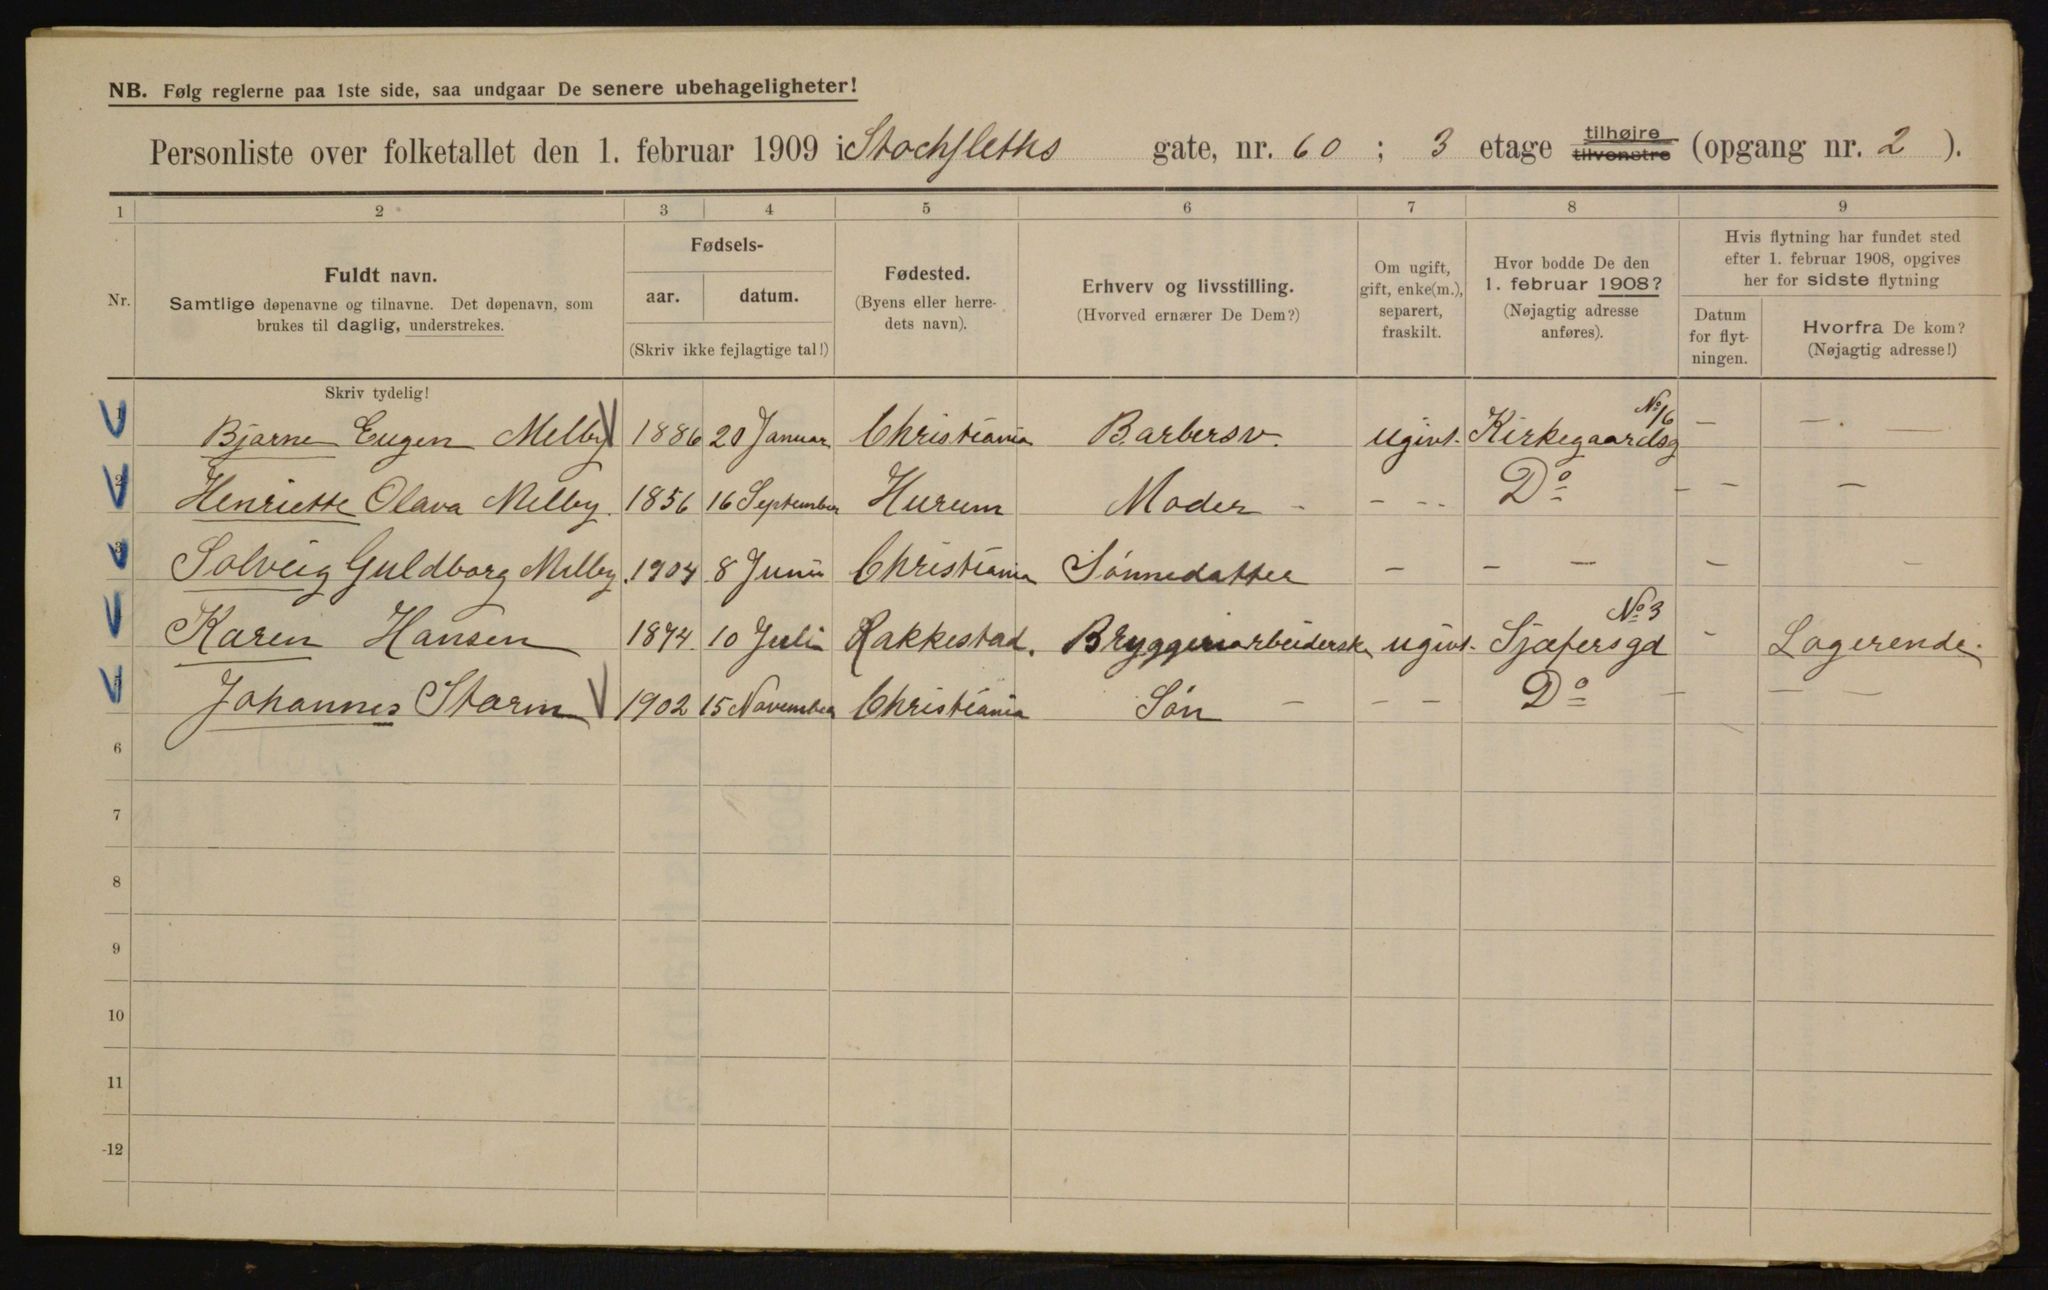 NB. Følg reglerne paa 1ste side, saa undgaar De senere ubehageligheter!
Personliste over folketallet den 1. februar 1909 i Stochfleths gate, nr. 60 ; 3 etage tilhøjre tilvenstre (opgang nr. 2 ).
1 2 3 4 5 6 7 8 9
Nr.
Fuldt navn.
Samtlige døpenavne og tilnavne. Det døpenavn, som
brukes til daglig, understrekes.
Fødsels-
aar. datum.
(Skriv ikke fejlagtige tal!)
Fødested.
(Byens eller herre-
dets navn).
Erhverv og livsstilling.
(Hvorved ernærer De Dem?)
Om ugift,
gift, enke(m.),
separert,
fraskilt.
Hvor bodde De den
1. februar 1908?
(Nøjagtig adresse
anføres).
Hvis flytning har fundet sted
efter 1. februar 1908, opgives
her for sidste flytning
Datum
for flyt-
ningen.
Hvorfra De kom?
(Nøjagtig adresse!)
Skriv tydelig!
No 16
1 Bjarne Eugen Melby 1886 20 Januar Christiania Barbersv. ugivt. Kirkegaardsg — — —
2 Henriette Olava Melby. 1856 16 September Hurum Moder - - - - Do - - —
3 Solveig Guldborg Melby. 1904 8 Juni Christiania Sønnedatter - - — - -
No 3
Karen Hansen 1874. 10 Juli Rakkestad. Bryggeriarbeiderske ugivt. Sjøfersgd - Logerende.
Johannes Storm 1902 15 November Christiania Søn - - - Do - — —
6
7
8
9
10
11
12